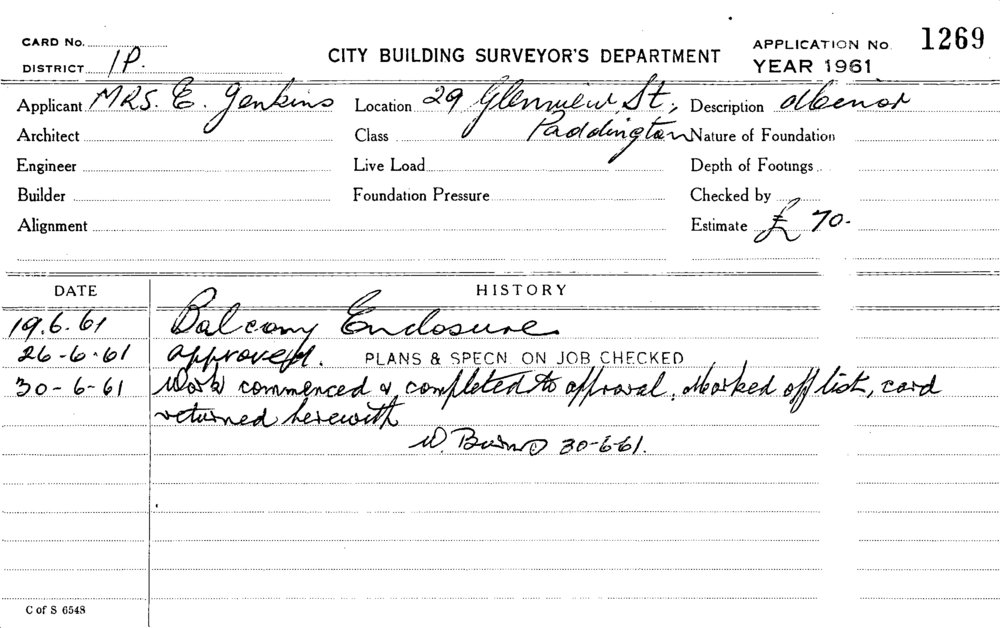 CARD No.
DISTRICT 1P.
CITY BUILDING SURVEYOR'S DEPARTMENT
APPLICATION No. 1269
YEAR 1961
Applicant MRS. E. Jenkins Location 29 Glenview St., Description Minor
Architect Class Paddington Nature of Foundation
Engineer Live Load Depth of Footings
Builder Foundation Pressure Checked by
Alignment Estimate £ 70-
DATE HISTORY
19.6.61 Balcony Enclosure
26-6-61 approved. PLANS & SPECN. ON JOB CHECKED
30-6-61 Work commenced & completed to approval. Marked off list, card
returned herewith
W. Burns 30-6-61.
C of S 6548